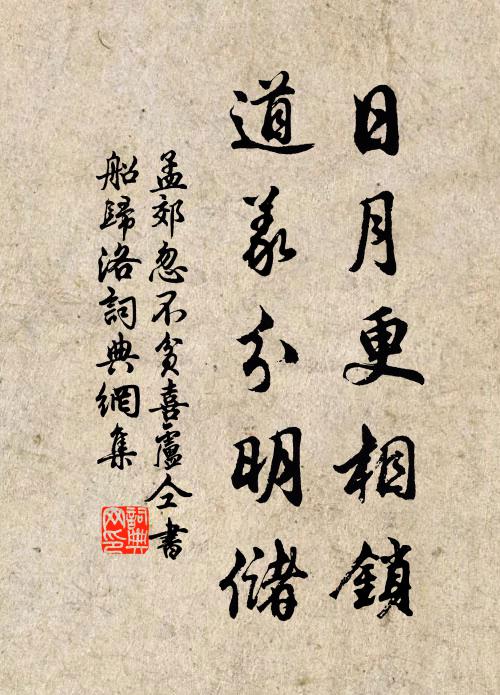 日月更相鎖
道義分明儲
孟郊忽不貧喜盧仝書
船歸洛詞典網集
詞典
网印